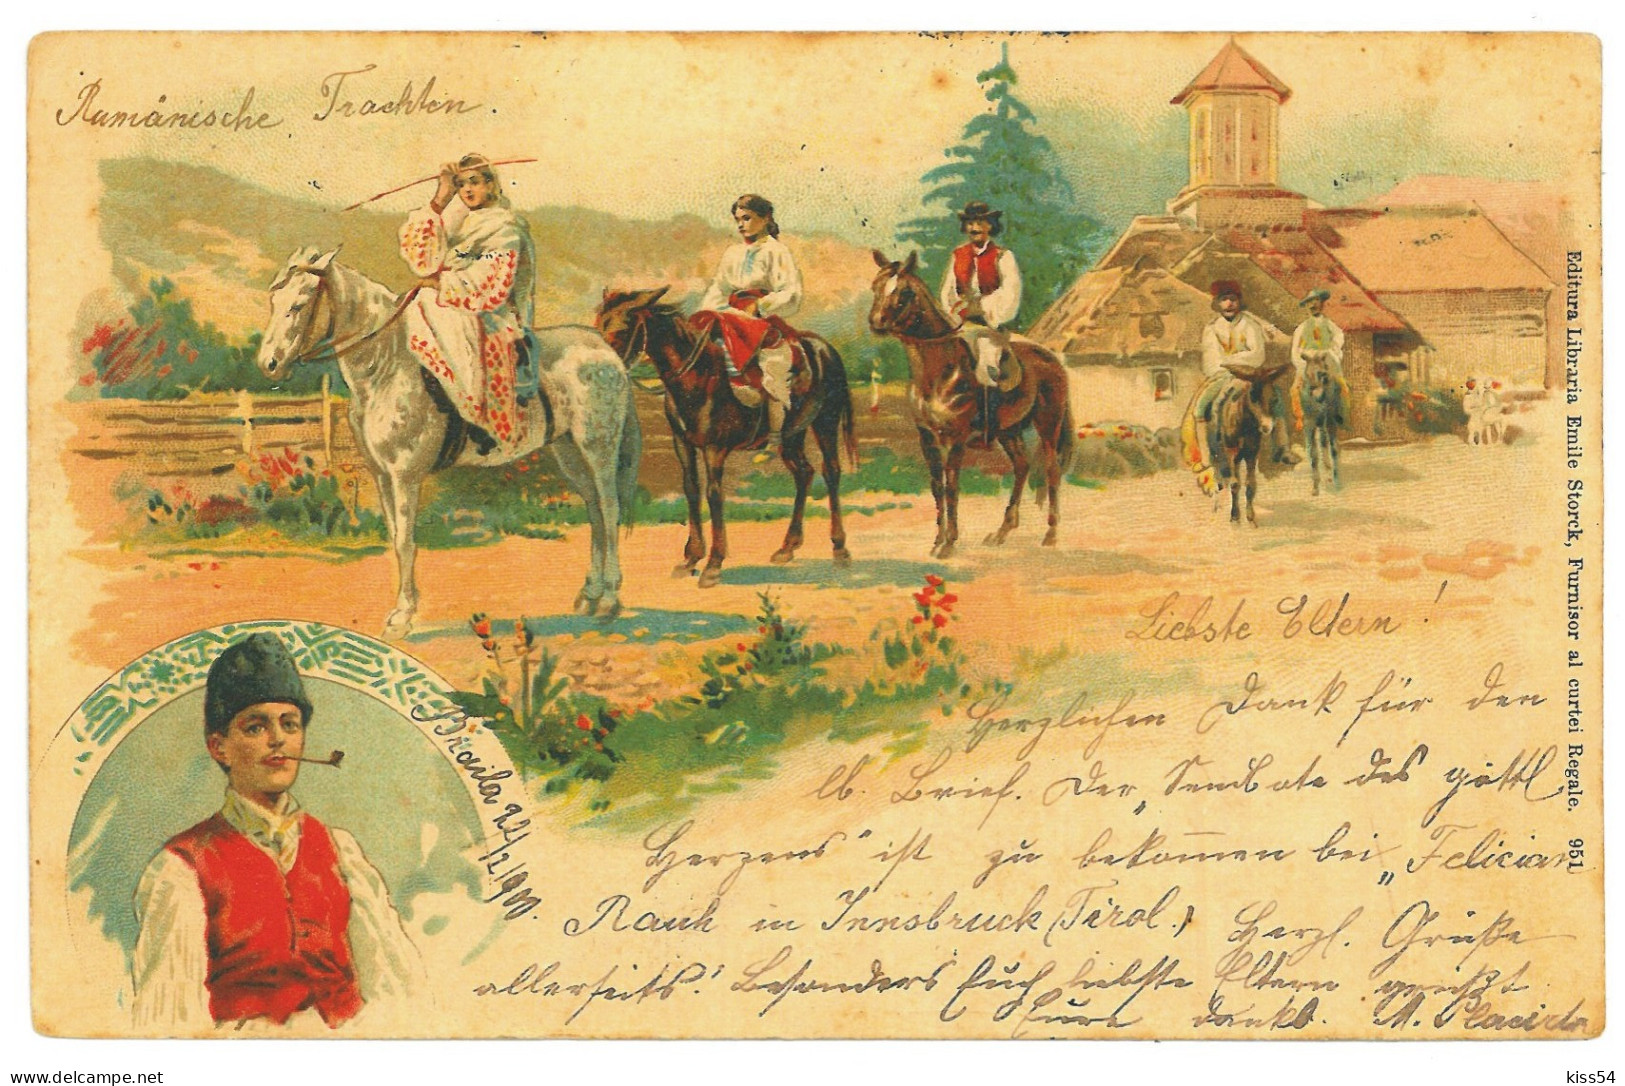 Rumänische Trachten.
Editura Libraria Emile Storck, Furnisor al curtei Regale. 951
Braila 22/2 1900.
Liebste Eltern!
Herzlichen Dank für den
lb. Brief. Der „Sendbote des göttl.
Herzens" ist zu bekommen bei „Felician
Rauch in Innsbruck (Tirol.) Herzl. Grüße
allerseits! Besonders Euch liebste Eltern grüßt
Eure dankb. M. Placida
delcampe.net
kiss54